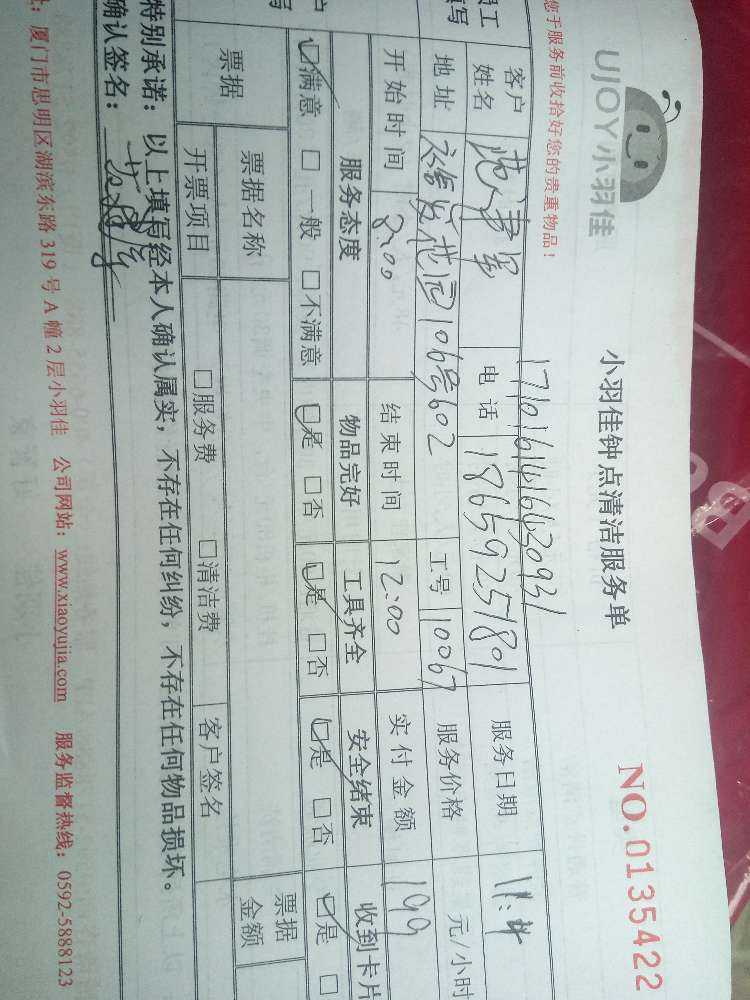 UJOY小羽佳
小羽佳钟点清洁服务单
NO.0135422
您于服务前收拾好您的贵重物品！
1710161416420931
客户姓名 电话 18659251801 服务日期 11.4
地址 花园106号602 工号 10067 服务价格 元/小时
开始时间 8:00 结束时间 12:00 实付金额 199
服务态度 物品完好 工具齐全 安全结束 收到卡片
□满意 □一般 □不满意 □是 □否 □是 □否 □是 □否 □是 □
票据 票据名称 票据金额
开票项目 □服务费 □清洁费 客户签名
特别承诺：以上填写经本人确认属实，不存在任何纠纷，不存在任何物品损坏。
确认签名：
址：厦门市思明区湖滨东路319号A幢2层小羽佳 公司网站：www.xiaoyujia.com 服务监督热线：0592-5888123